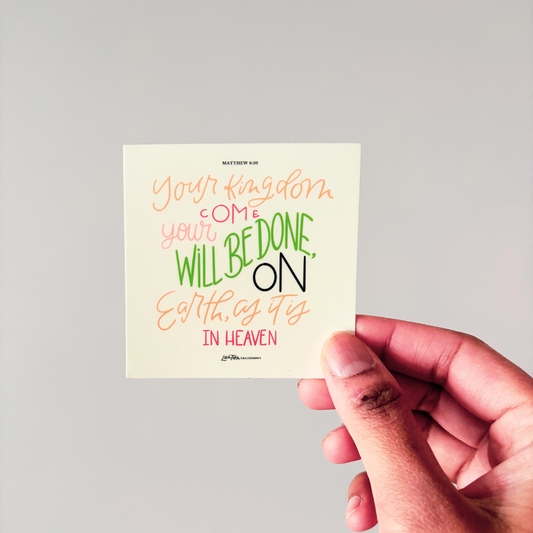 MATTHEW 6:10
your kingdom
COME
your
WILL BE DONE,
ON
Earth, as it is
IN HEAVEN